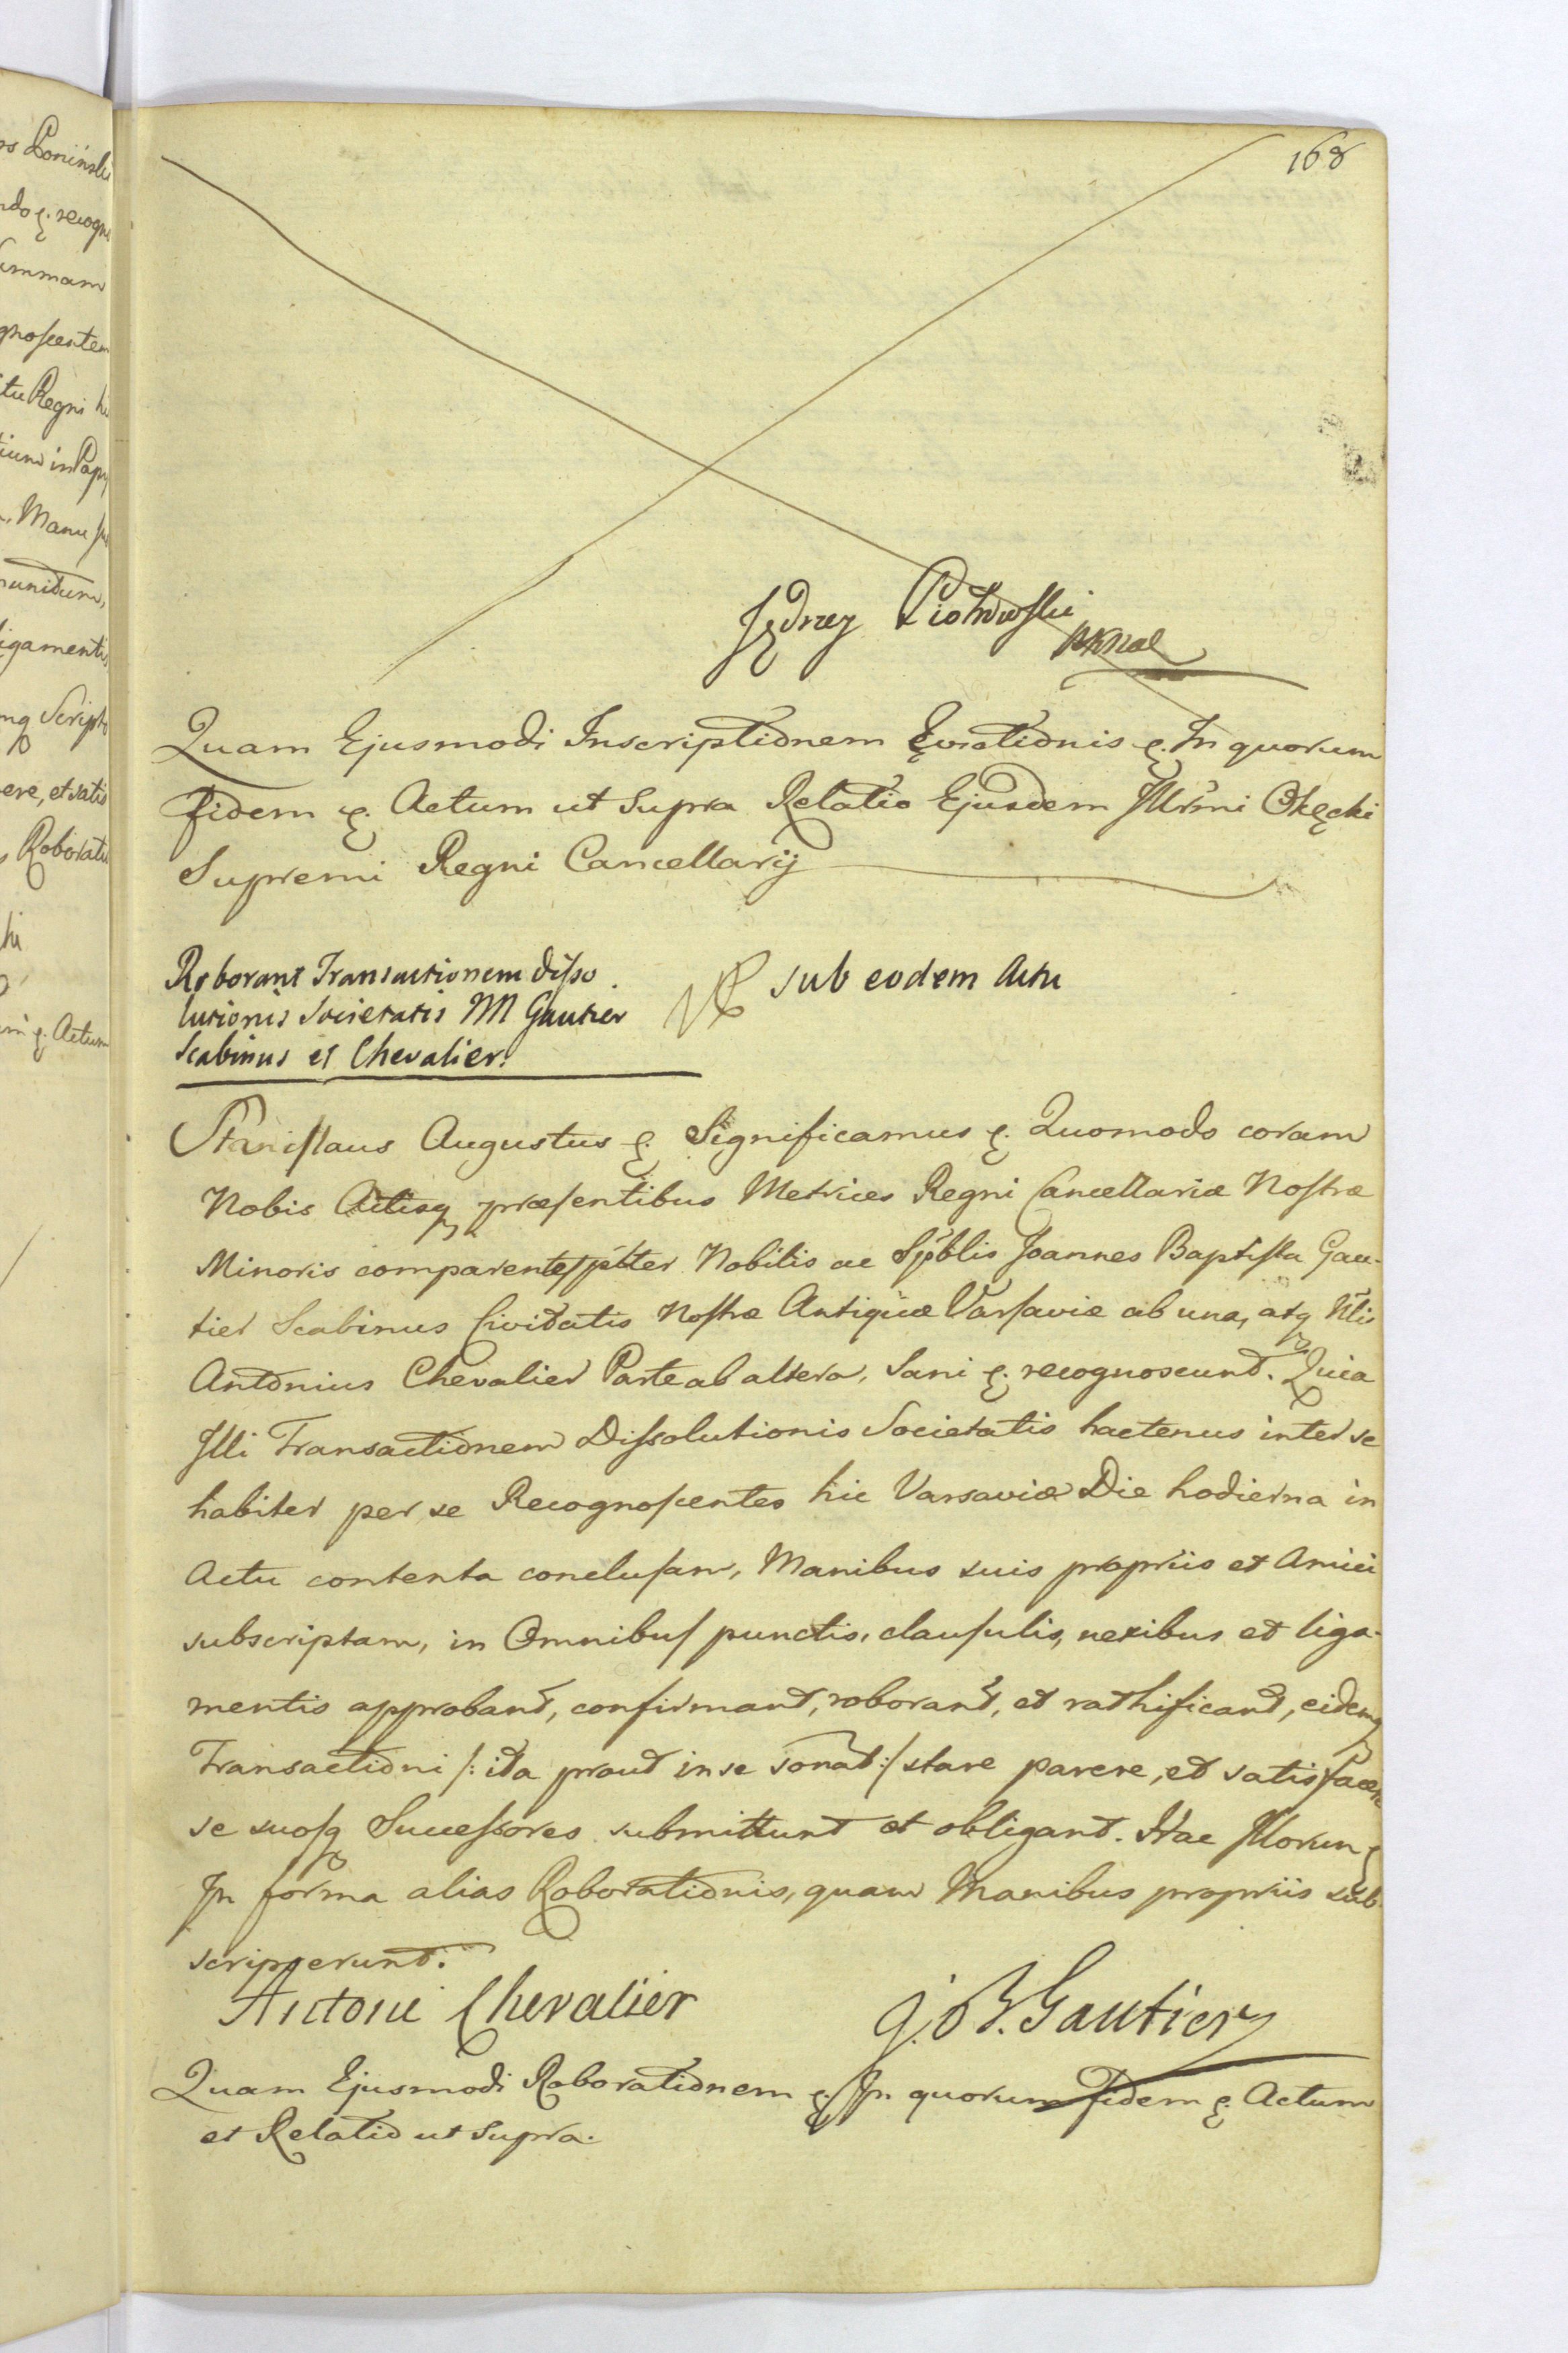 168
Jędrzey Piotrowski
Quam Ejusmodi Inscriptionem Evictionis &. In quorum
fidem &. Actum ut Supra Relatio Ejusdem Illrmi Okęcki
Supremi Regni Cancellarij
Roborant Transactionem disso
lutionis societatis M Gautier
Scabinus et Chevalier.
sub eodem Actu
Stanislaus Augustus &. Significamus &. Quomodo coram
Nobis Actisq præsentibus Metrices Regni Cancellariæ Nostræ
Minoris comparentes pltter Nobilis ac Spblis Joannes Baptista Gau-
tier Scabinus Civitatis Nostræ Antiquæ Varsaviæ ab una, atq Nlis
Antonius Chevalier Parte ab altera, Sani &. recognoscunt. Quia
Illi Transactionem Dissolutionis Societatis hactenus inter se
habiter per se Recognoscentes hic Varsaviæ Die hodierna in
Actu contenta conclusam, Manibus suis propriis et Amici
subscriptam, in Omnibus punctis, clausulis, nexibus et liga-
mentis approbant, confirmant, roborant, et rathificant, eidemq
Transactioni /: ita prout in se sonat :/ stare parere, et satisfacere
se suosq Successores submittunt et obligant. Hac Illorum &
In forma alias Roborationis, quam Manibus propriis sub
scripserunt.
Antoni Chevalier
J. B. Gautier
Quam Ejusmodi Roborationem &. In quorum fidem &. Actum
et Relatio ut Supra.
rs Poniński
ndo &. recogn
ummam
gnoscentem
itu Regni hi
tium in Papy
Manu su
munitum,
igamentis
mq Scripto
ere, et satis
Roborati
&. Actum